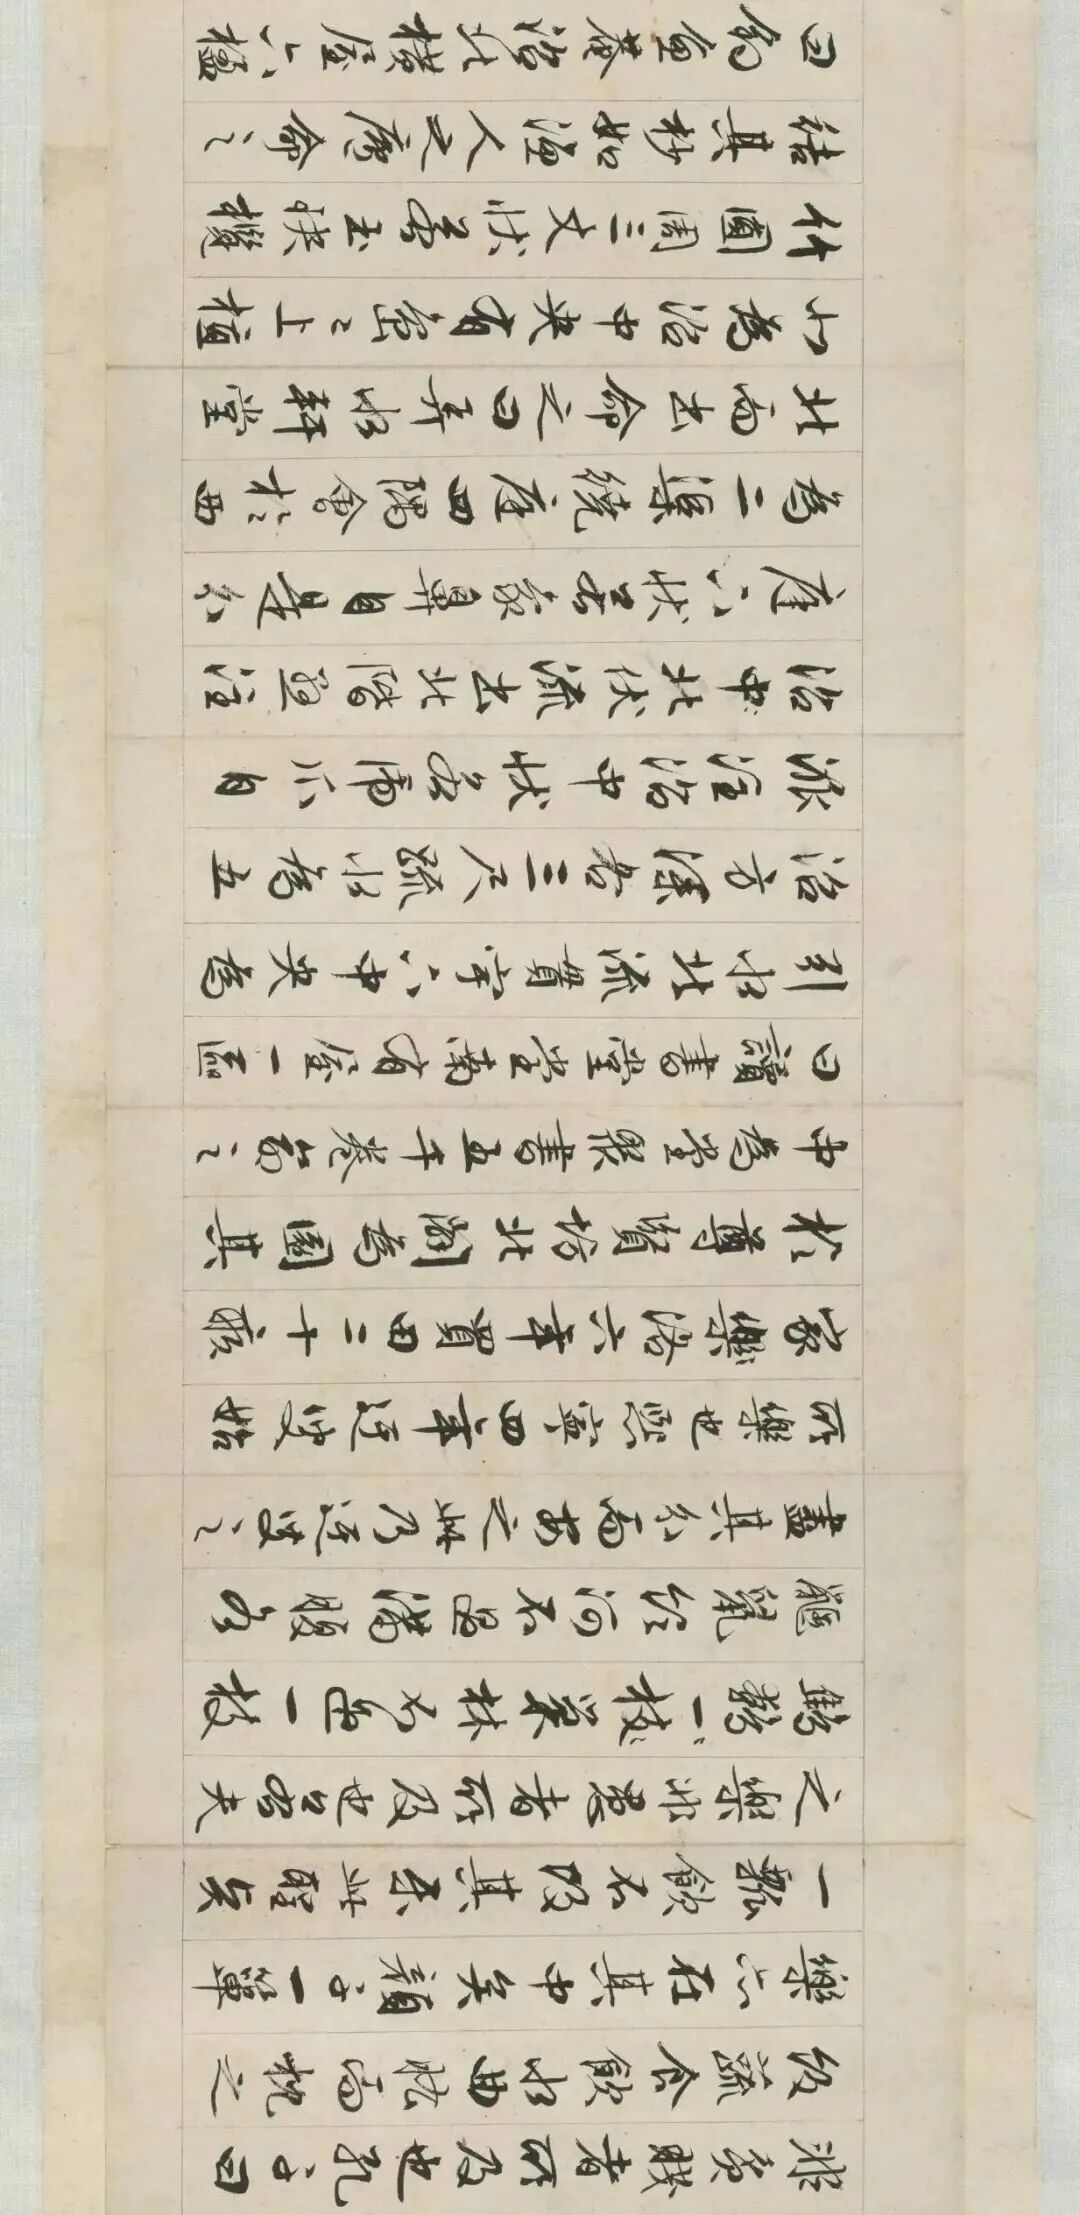 非貧賤者所及也孔子曰
飯蔬食飲水曲肱而枕之
樂亦在其中矣顏子一簞
一瓢飲不改其樂此聖賢
之樂非愚者所及也若夫
鷦鷯一枝巢林不過一枝
鼴鼠飲河不過滿腹各
盡其分而安之此乃迂叟之
所樂也熙寧四年迂叟始
家樂洛六年買田二十畝
於尊賢坊北闢為園其
中為堂聚書五千卷命之
曰讀書堂堂南有屋一區
引水北流貫宇下中央為
沼方深各三尺疏水為五
派注沼中狀若虎爪自
沼中北伏流出北階懸注
庭下狀若象鼻自是分
為二渠繞庭四隅會於西
北而出命之曰弄水軒堂
北為沼中央有島島上植
竹圓周三丈狀若玉玦攬
結其杪如漁人之廬命之
曰釣魚菴沼北橫屋六楹